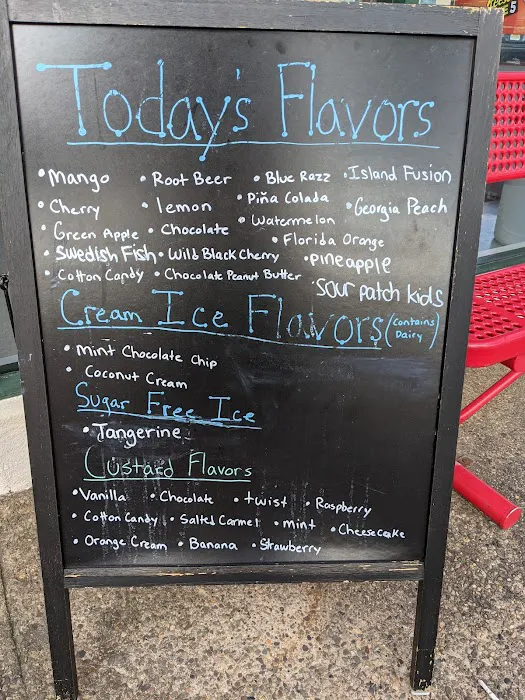 Today's Flavors
• Mango • Root Beer • Blue Razz • Island Fusion
• Cherry • lemon • Piña Colada • Georgia Peach
• Green Apple • Chocolate • Watermelon • Florida Orange
• Swedish Fish • Wild Black Cherry • Pineapple
• Cotton Candy • Chocolate Peanut Butter • Sour patch kids
Cream Ice Flavors (contains Dairy)
• Mint Chocolate Chip
• Coconut Cream
Sugar Free Ice
• Tangerine
Custard Flavors
• Vanilla • Chocolate • twist • Raspberry
• Cotton Candy • Salted Carmel • mint • Cheesecake
• Orange Cream • Banana • Strawberry